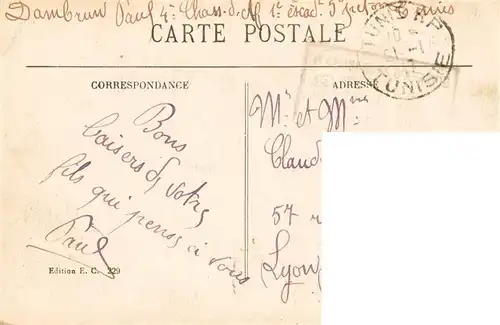 Dambrun Paul 4e Chass. d'Af 1er escad. 5e peloton Tunis
CARTE POSTALE
TUNIS R.P
TUNISIE
CORRESPONDANCE
ADRESSE
Bons
baisers de votre
fils qui pense à vous
Paul
Mr et Mme
Claud
57 r
Lyon
Edition E. C. 229